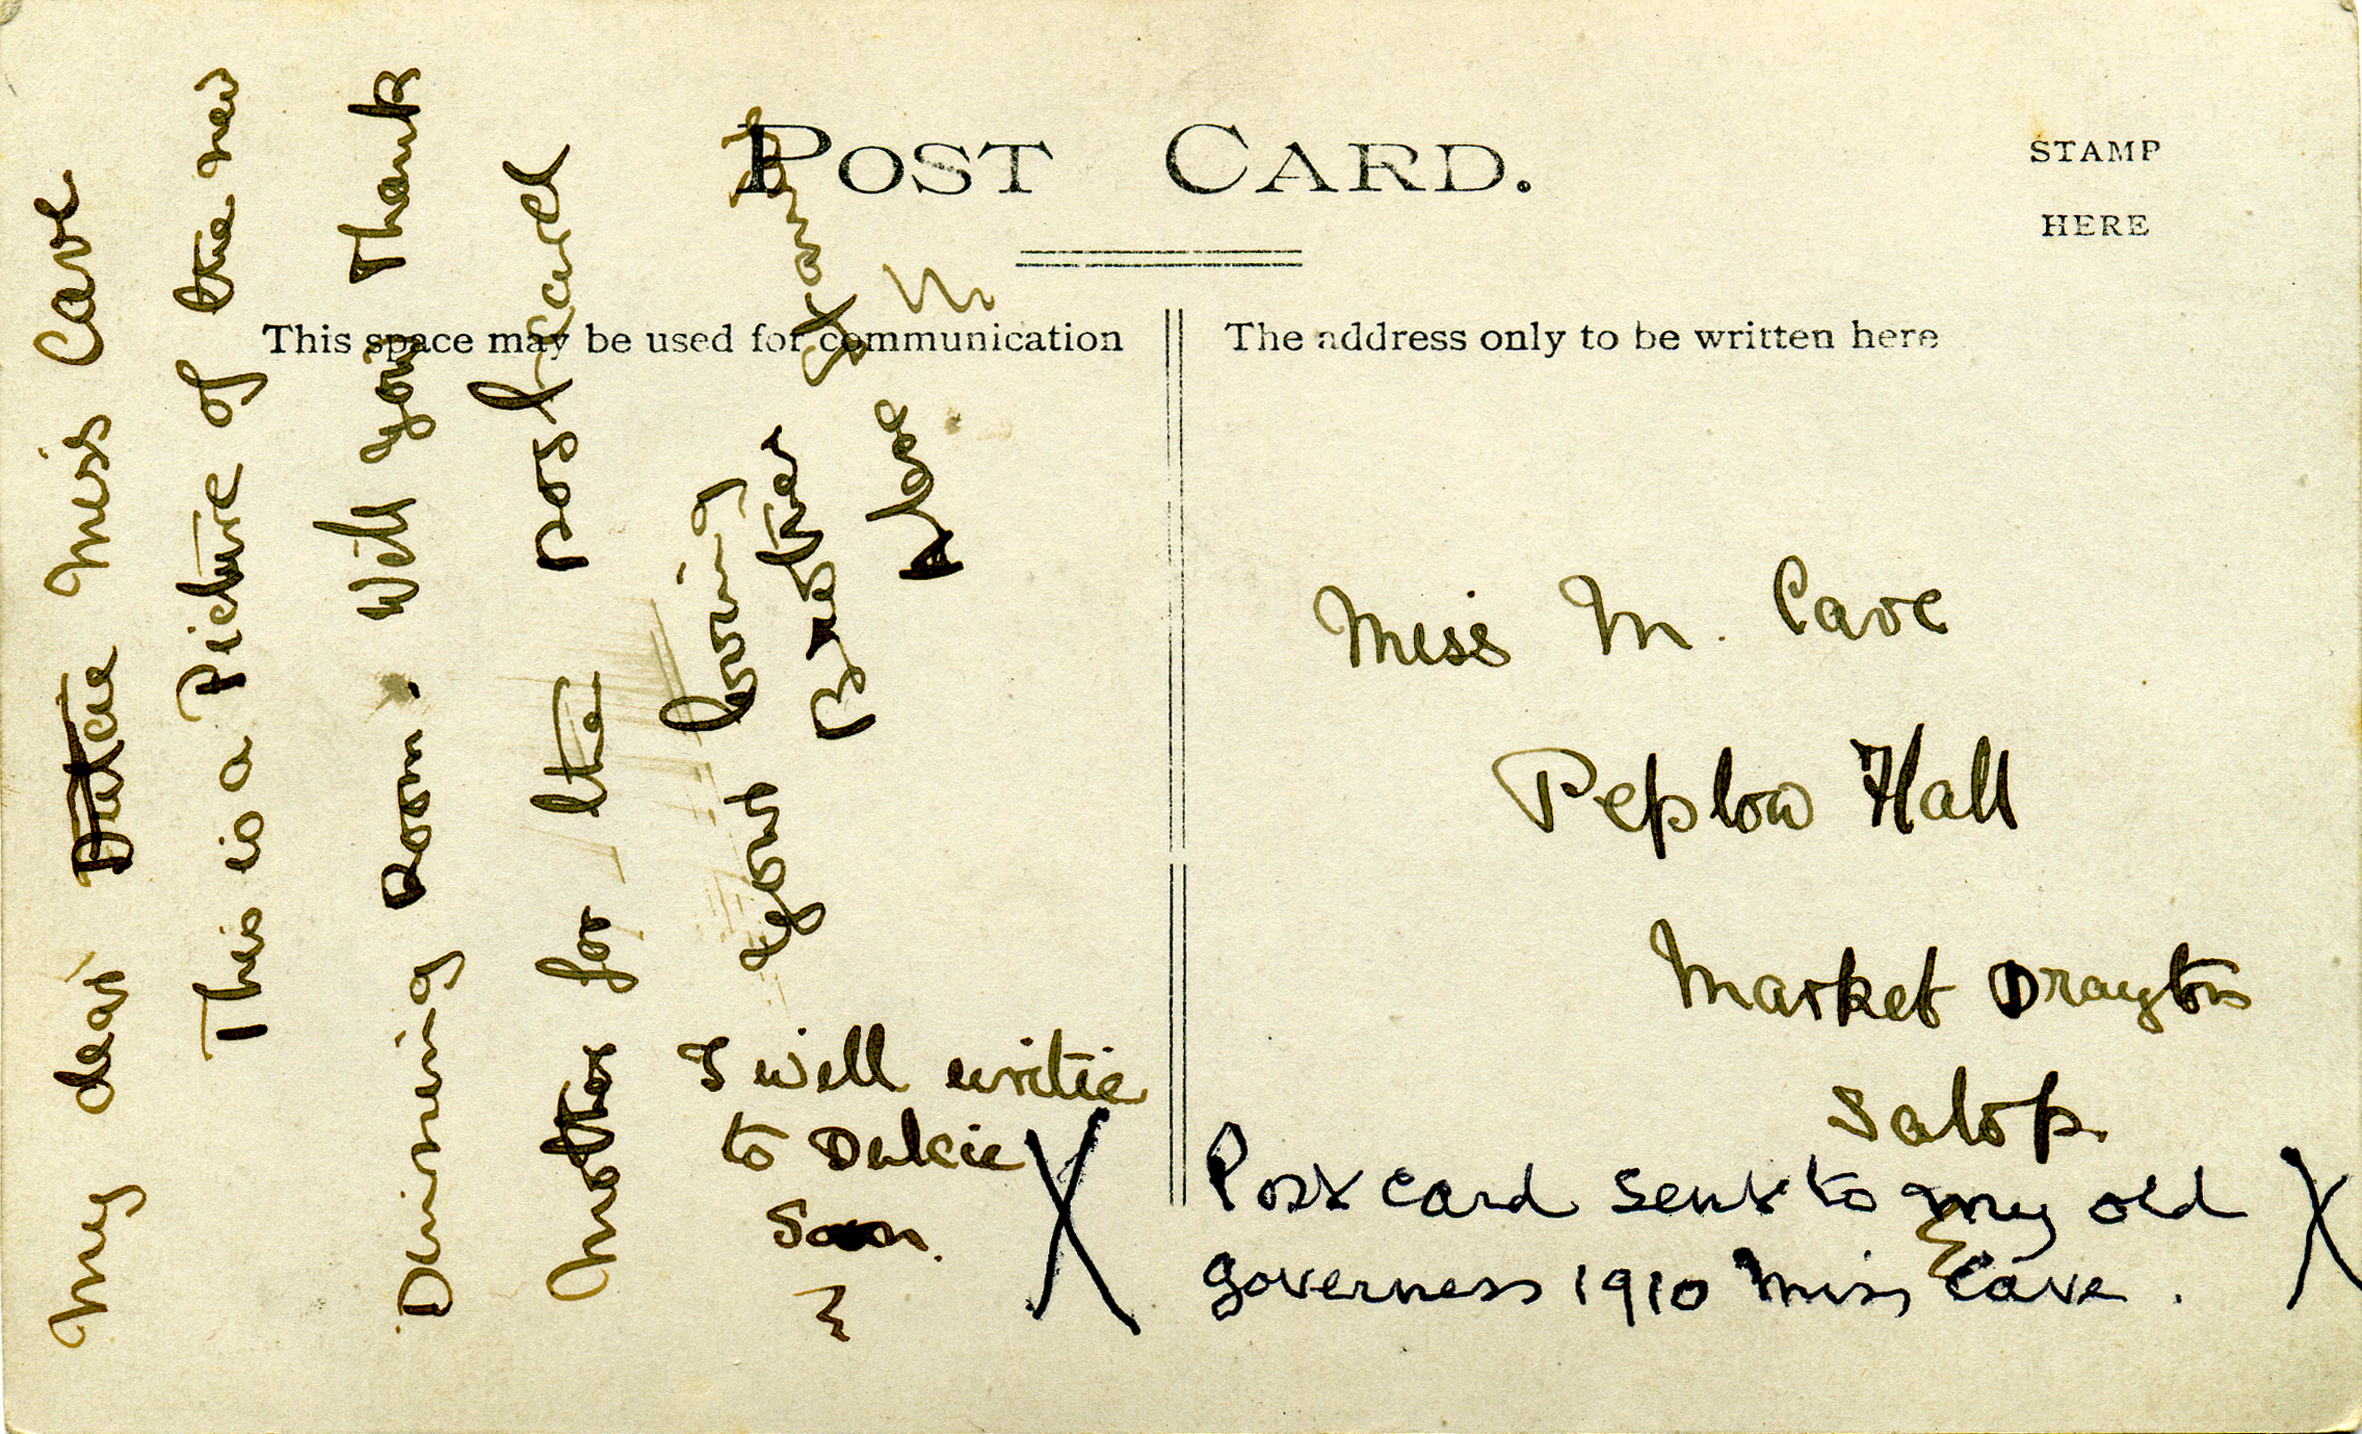 POST CARD.
STAMP
HERE
This space may be used for communication
The address only to be written here
My dear Dulcie Miss Cave
This is a Picture of the new
Room. Will you Thank
Mother for the postcard
Your loving
Brother
Alec
I will writie
to Dulcie
Soon.
Miss M. Cave
Peplow Hall
Market Drayton
Salop.
Postcard sent to my old
governess 1910 Miss Cave.